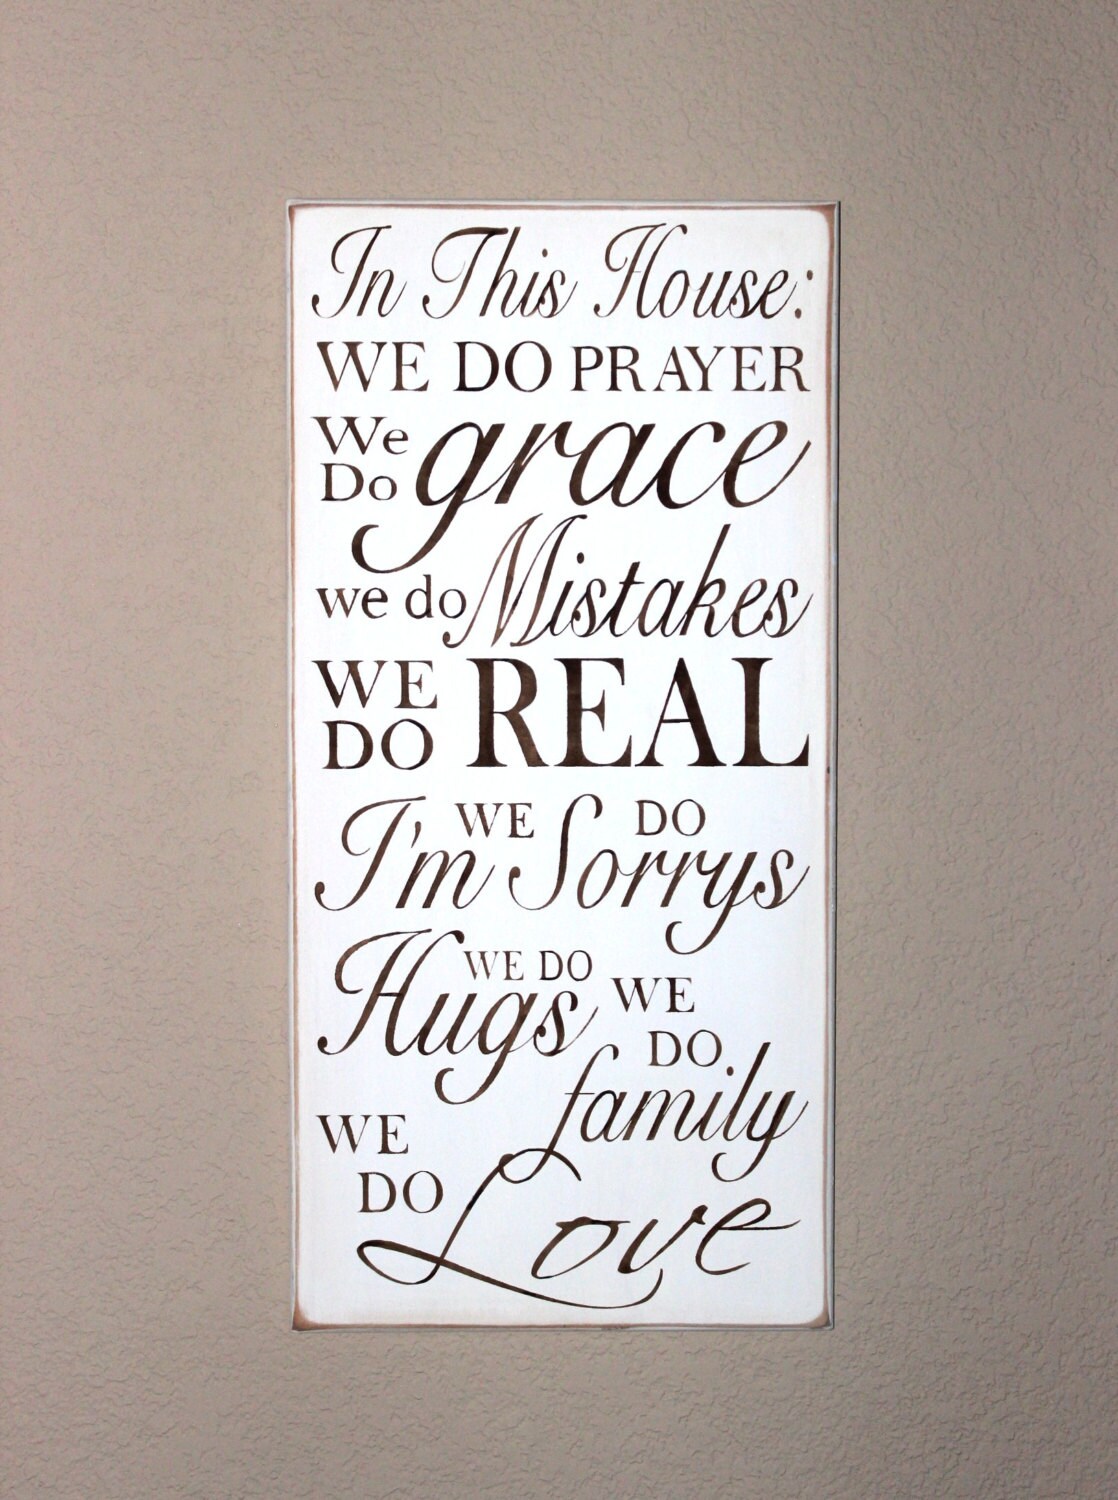 In This House:
WE DO PRAYER
We Do grace
we do Mistakes
WE DO REAL
WE DO
I'm Sorrys
WE DO
Hugs
WE DO
family
WE DO
Love